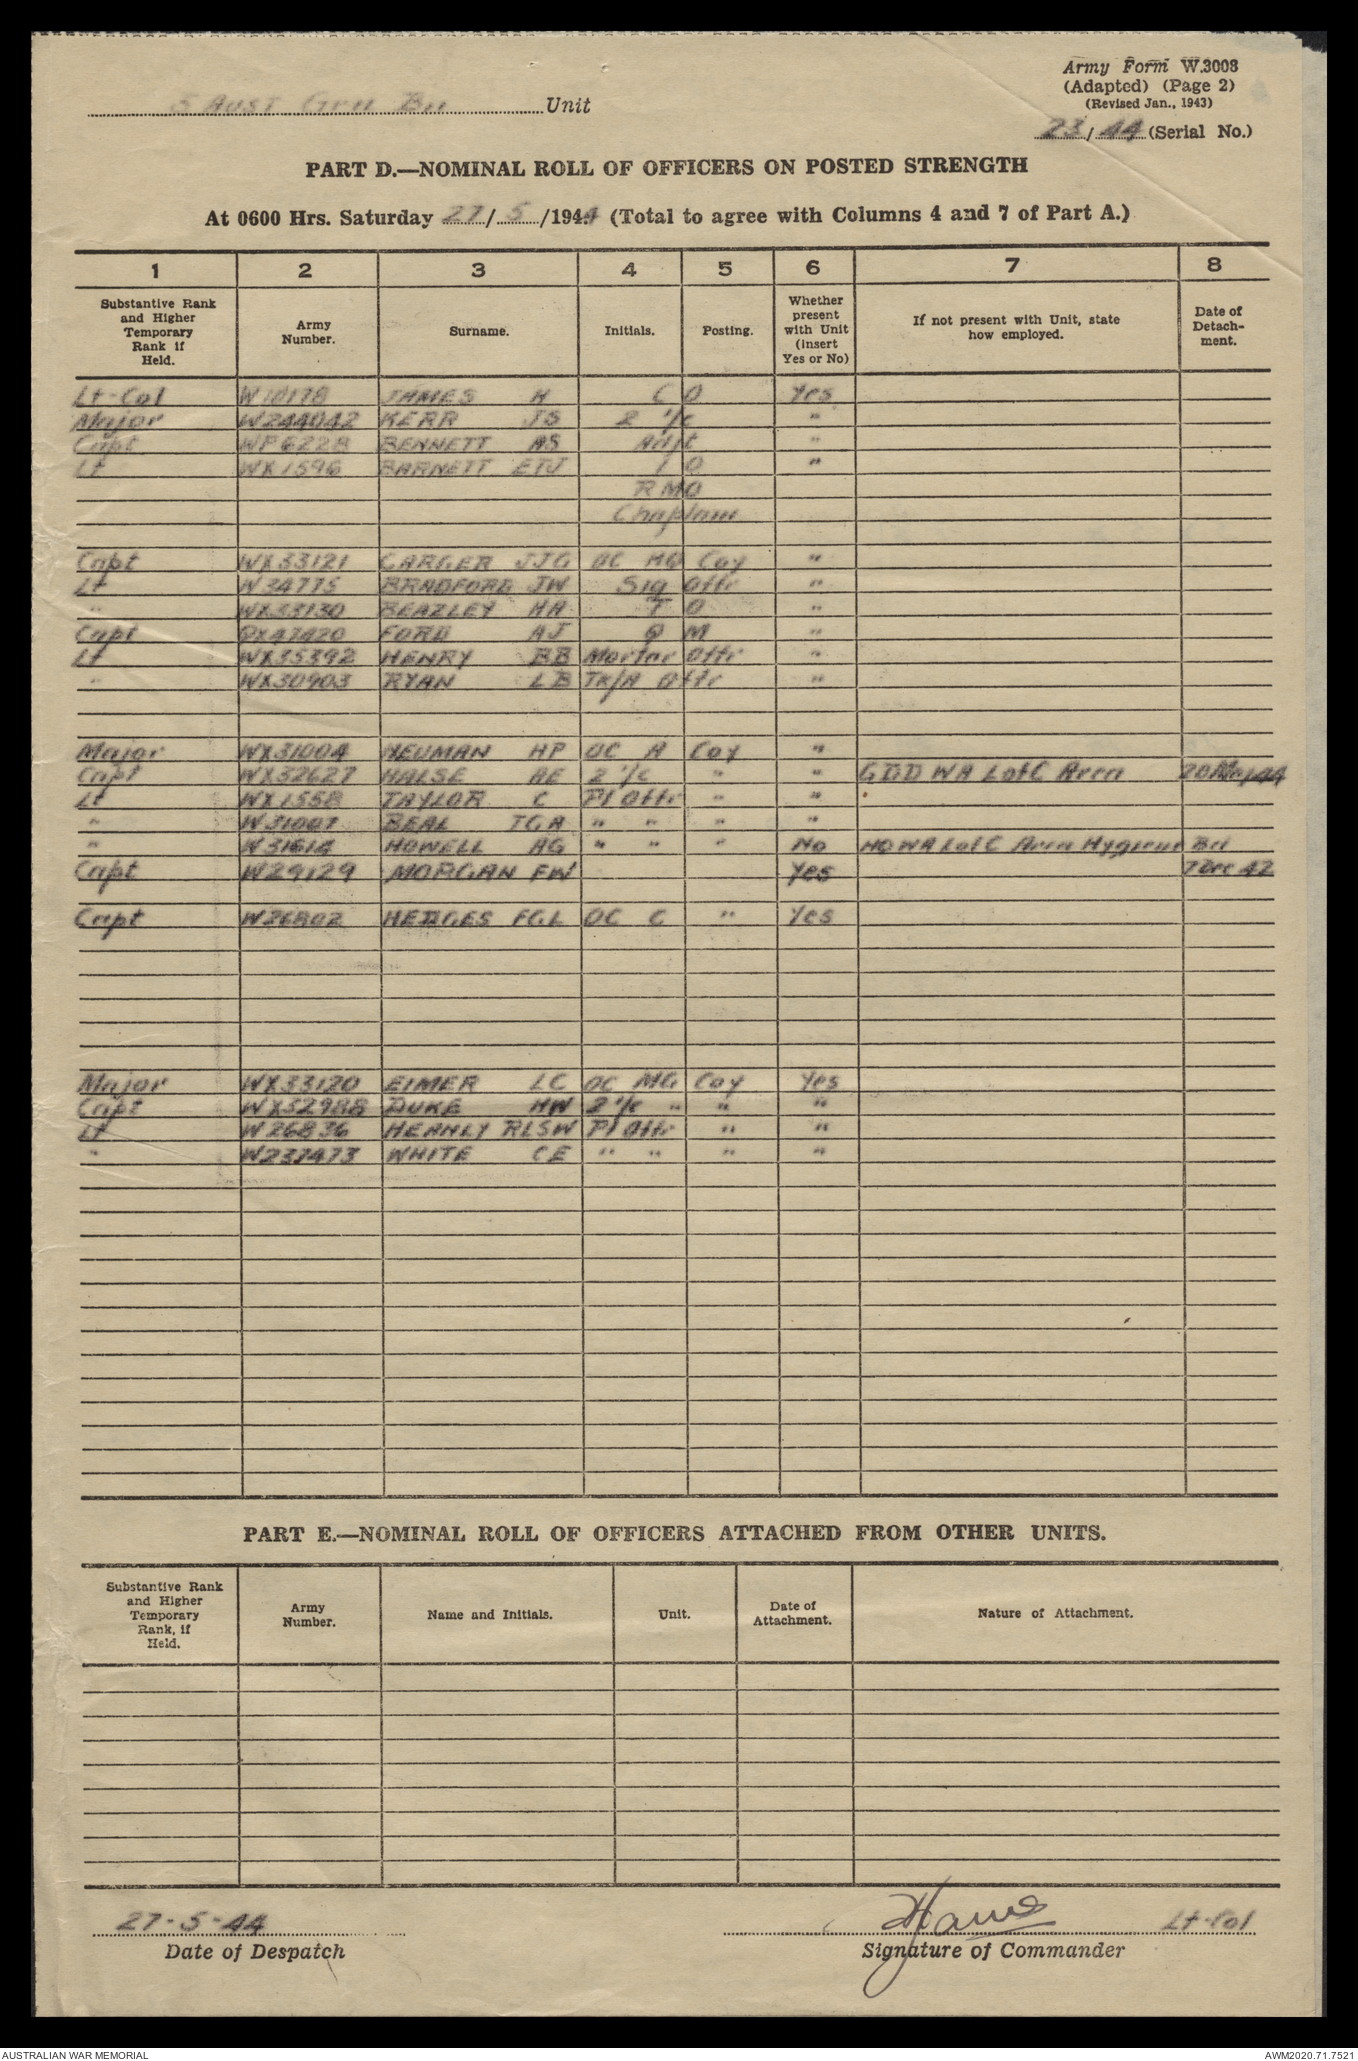 Army Form W.3008
(Adapted) (Page 2)
(Revised Jan., 1943)
5 Aust Grn Bn Unit
23/44 (Serial No.)
PART D.—NOMINAL ROLL OF OFFICERS ON POSTED STRENGTH
At 0600 Hrs. Saturday 27/5/1944 (Total to agree with Columns 4 and 7 of Part A.)
1 2 3 4 5 6 7 8
Substantive Rank and Higher Temporary Rank if Held. Army Number. Surname. Initials. Posting. Whether present with Unit (insert Yes or No) If not present with Unit, state how employed. Date of Detach- ment.
Lt-Col W10178 JAMES H C O Yes
Major W244042 KERR JS 2 i/c "
Capt WP6228 BENNETT AS Adjt "
Lt WX1596 BARNETT ETJ I O "
RMO
Chaplain
Capt WX33121 CARGER JJG OC HQ Coy "
Lt W34775 BRADFORD JW Sig Offr "
" WX33130 BEAZLEY HA T O "
Capt QX47420 FORD AJ Q M "
Lt WX35392 HENRY BB Mortar Offr "
" WX30903 RYAN LB Tk/A Offr "
Major WX31004 NEUMAN HP OC A Coy "
Capt WX32627 HALSE AE 2 i/c " " GDD WA LofC Area 20May44
Lt WX1558 TAYLOR C Pl Offr " "
" W31007 BEAL TGA " " " "
" W31614 HOWELL AG " " " No HQ WA LofC Area Hygiene Bri
Capt W29129 MORGAN FW Yes 7 Dec 42
Capt W26802 HEDGES FGL OC C " Yes
Major WX33120 EIMER LC OC MG Coy Yes
Capt WX32988 DUKE HW 2 i/c " " "
Lt W26836 HEANLY RLSW Pl Offr " "
" W237473 WHITE CE " " " "
PART E.—NOMINAL ROLL OF OFFICERS ATTACHED FROM OTHER UNITS.
Substantive Rank and Higher Temporary Rank, if Held. Army Number. Name and Initials. Unit. Date of Attachment. Nature of Attachment.
27-5-44 HJames Lt-Col
Date of Despatch Signature of Commander
AUSTRALIAN WAR MEMORIAL AWM2020.71.7521